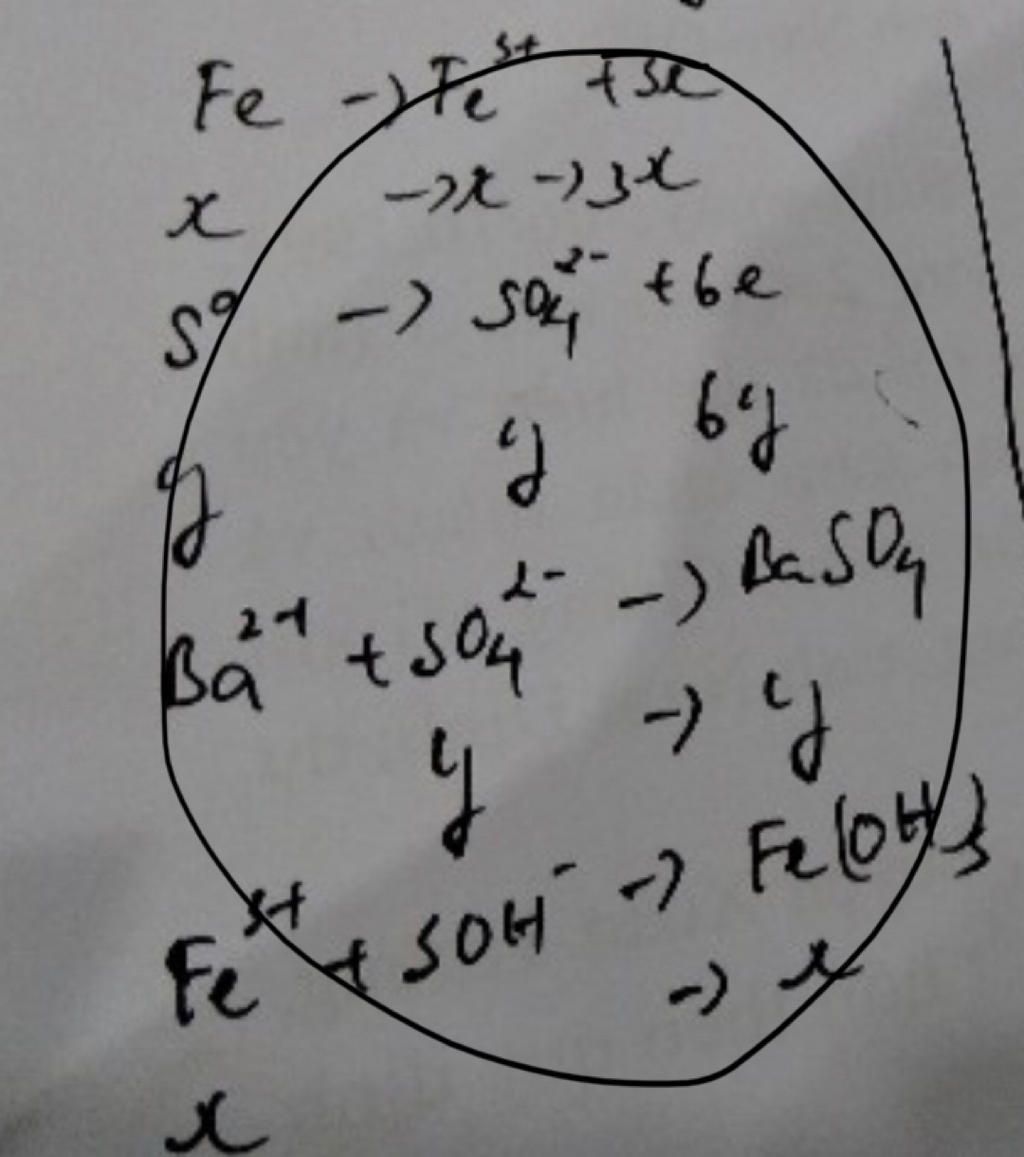 Fe -> Fe³⁺ + 3e
x -> x -> 3x
S⁰ -> SO₄²⁻ + 6e
y y 6y
Ba²⁺ + SO₄²⁻ -> BaSO₄
y -> y
Fe³⁺ + 3OH⁻ -> Fe(OH)₃
x -> x